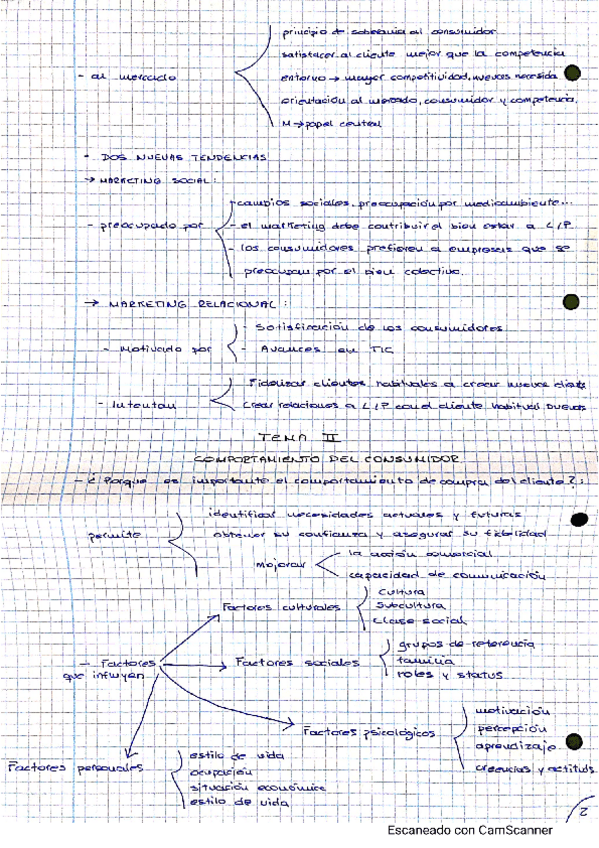 principio de soberanía al consumidor
satisfacer al cliente mejor que la competencia
- al mercado
entorno → mayor competitividad, nuevas necesida
orientación al mercado, consumidor y competencia.
M → papel central
- DOS NUEVAS TENDENCIAS
→ MARKETING SOCIAL:
- cambios sociales, preocupación por medioambiente...
- preocupado por - el marketing debe contribuir el bien estar a L/P.
- los consumidores prefieren a empresas que se
preocupan por el bien colectivo.
→ MARKETING RELACIONAL:
- Satisfacción de los consumidores
- Motivado por - Avances en TIC
Fidelizar clientes habituales a crear nuevos
- Intentan Crear relaciones a L/P con el cliente habitual
TEMA II
COMPORTAMIENTO DEL CONSUMIDOR
- ¿Porque es importante el comportamiento de compra del cliente?:
identificar necesidades actuales y futuras
permite obtener su confianza y asegurar su fidelidad
mejorar la acción comercial
capacidad de comunicación
cultura
Factores culturales subcultura
clase social
grupos de referencia
- Factores que influyen Factores sociales familia
roles y status
motivación
Factores psicológicos percepción
aprendizaje
creencias y actituds
Factores personales estilo de vida
ocupación
situación económica
estilo de vida
2
Escaneado con CamScanner